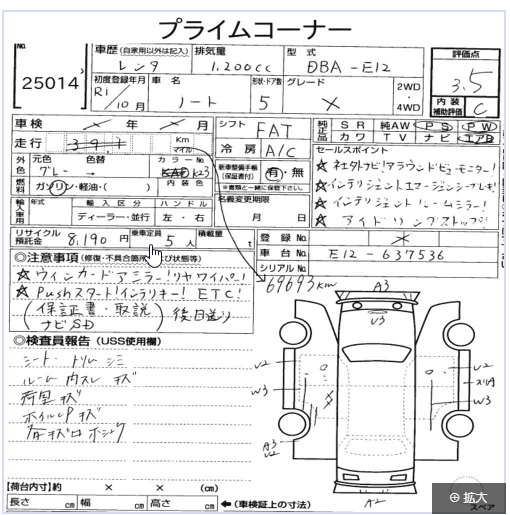 プライムコーナー
No.
25014
車歴 (自家用以外は記入) 排気量 型式
レンタ 1,200cc DBA-E12
評価点
3.5
内装補助評価 C
初度登録年月 車名 形状・ドア数 グレード
R1/10月 ノート 5 ✕
2WD・4WD
車検 年 月
走行 Km マイル
シフト FAT
冷房 A/C
純正品 SR 純AW PS PW
カワ TV ナビ エアB
外色 元色 色替 カラーNo.
グレー KAD K23
燃料 ガソリン・軽油・( ) 内装色
新車整備手帳 (保証書付) 有・無
※書類と一緒に保管下さい。
名義変更期限
月 日
セールスポイント
☆ 社外ナビ!アラウンドビューモニター!
☆ インテリジェントエマージェンシーブレーキ!
☆ インテリジェントルームミラー!
☆ アイドリングストップ!
輸入車用 年式 輸入区分 ハンドル
ディーラー・並行 左・右
リサイクル預託金 8,190円 乗車定員 5人 積載量 t
登録No.
車台No. E12-637536
シリアルNo.
◎注意事項 (修復・不具合箇所及び状態等)
☆ ウインカードアミラー!リヤワイパー!
☆ Pushスタート!インテリキー!ETC!
(保証書・取説 ナビSD) 後日送り
69693km
◎検査員報告 (USS使用欄)
シート、トリム シミ
ルーム内スレ キズ
荷室 キズ
ホイルCP キズ
A3
U3
U2
W3
U2
スリキ
W3
A3
U2
A2
【荷台内寸】約 × × (cm)
長さ cm 幅 cm 高さ cm
←(車検証上の寸法)
スペア
拡大